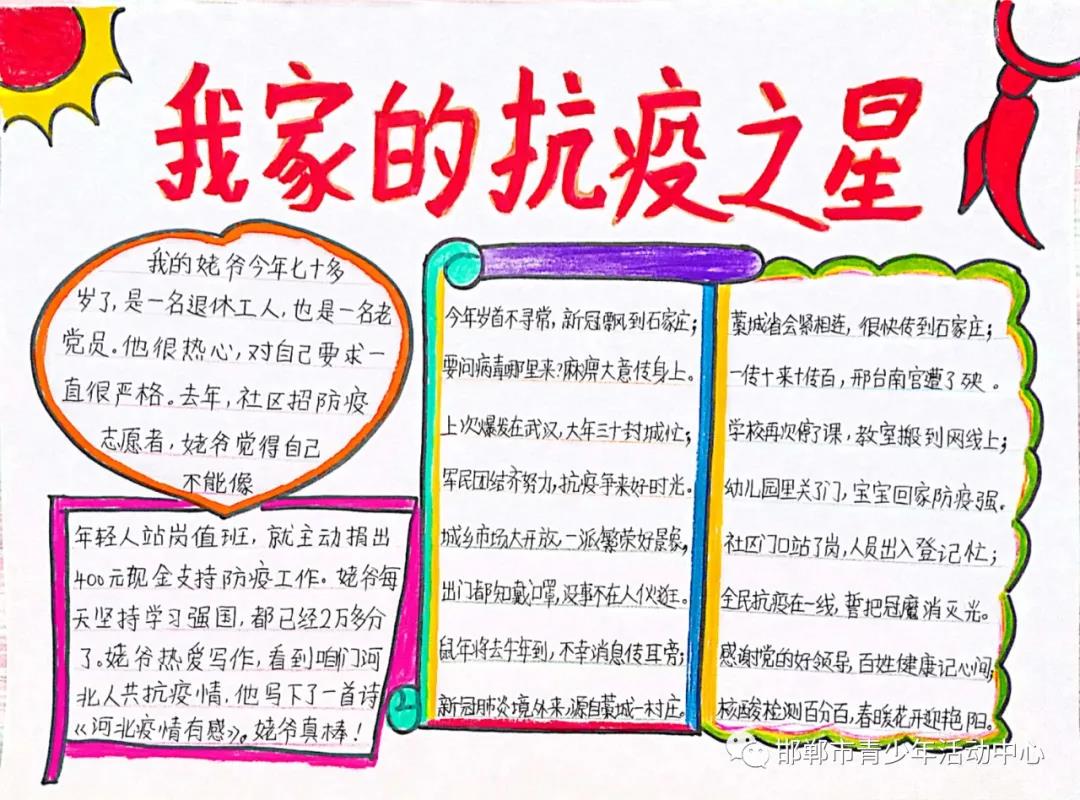 我家的抗疫之星
我的姥爷今年七十多
岁了，是一名退休工人，也是一名老
党员。他很热心，对自己要求一
直很严格。去年，社区招防疫
志愿者，姥爷觉得自己
不能像
年轻人站岗值班，就主动捐出
400元现金支持防疫工作。姥爷每
天坚持学习强国，都已经2万多分
了。姥爷热爱写作，看到咱们河
北人共抗疫情，他写下了一首诗
《河北疫情有感》。姥爷真棒！
今年岁首不寻常，新冠飘到石家庄；
要问病毒哪里来？麻痹大意传身上。
上次爆发在武汉，大年三十封城忙；
军民团结齐努力，抗疫争来好时光。
城乡市场大开放，一派繁荣好景象，
出门都知戴口罩，没事不在人伙逛。
鼠年将去牛年到，不幸消息传耳旁；
新冠肺炎境外来，源自藁城一村庄。
藁城省会紧相连，很快传到石家庄；
一传十来十传百，邢台南宫遭了殃。
学校再次停了课，教室搬到网线上；
幼儿园里关了门，宝宝回家防疫强。
社区门口站了岗，人员出入登记忙；
全民抗疫在一线，誓把冠魔消灭光。
感谢党的好领导，百姓健康记心间；
核酸检测百分百，春暖花开迎艳阳。
邯郸市青少年活动中心